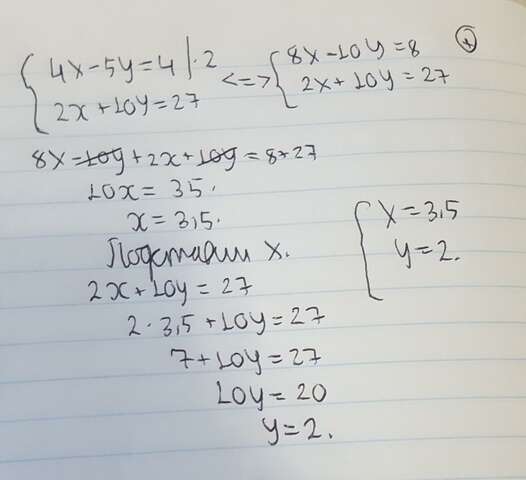 { 4x-5y=4 |·2 <=> { 8x-10y=8 (+)
2x+10y=27 2x+10y=27
8x=10y+2x+10y=8+27
10x=35.
x=3,5.
Подставим x.
2x+10y=27
2·3,5+10y=27
7+10y=27
10y=20
y=2.
{ x=3,5
y=2.